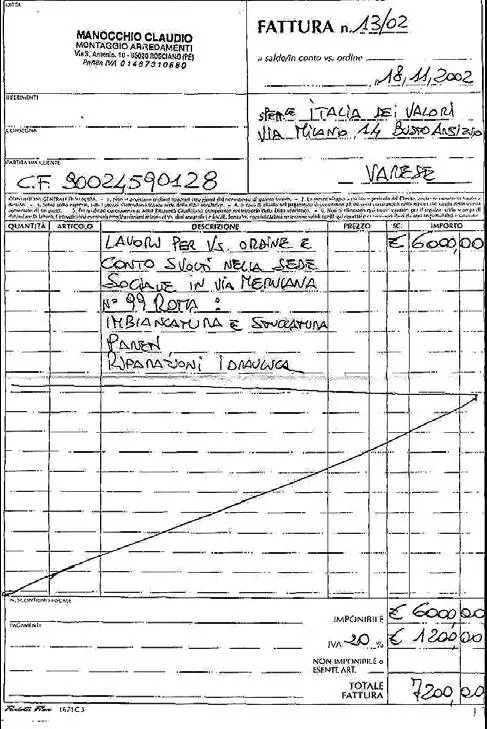 DITTA
MANOCCHIO CLAUDIO
MONTAGGIO ARREDAMENTI
Via S. Antonio, 10 - 65020 ROSCIANO (PE)
PARTITA IVA 01467310680
FATTURA n. 13/02
a saldo/in conto vs. ordine
, 18, 11, 2002
RIFERIMENTI
SPETT.LE ITALIA DEI VALORI
VIA MILANO 14 BUSTO ARSIZIO
CONSEGNA
VARESE
PARTITA IVA CLIENTE
C.F. 90024590128
CONDIZIONI GENERALI DI VENDITA
QUANTITÀ ARTICOLO DESCRIZIONE PREZZO SC. IMPORTO
LAVORI PER VS. ORDINE E € 6000,00
CONTO SVOLTI NELLA SEDE
SOCIALE IN VIA MERULANA
N° 99 ROMA :
IMBIANCATURA E STUCCATURA
PARETI,
RIPARAZIONI IDRAULICA
N. SCONTRINO FISCALE
PAGAMENTI
IMPONIBILE € 6000,00
IVA 20 % € 1200,00
NON IMPONIBILE o
ESENTE ART.
TOTALE
FATTURA 7200,00
1671C3